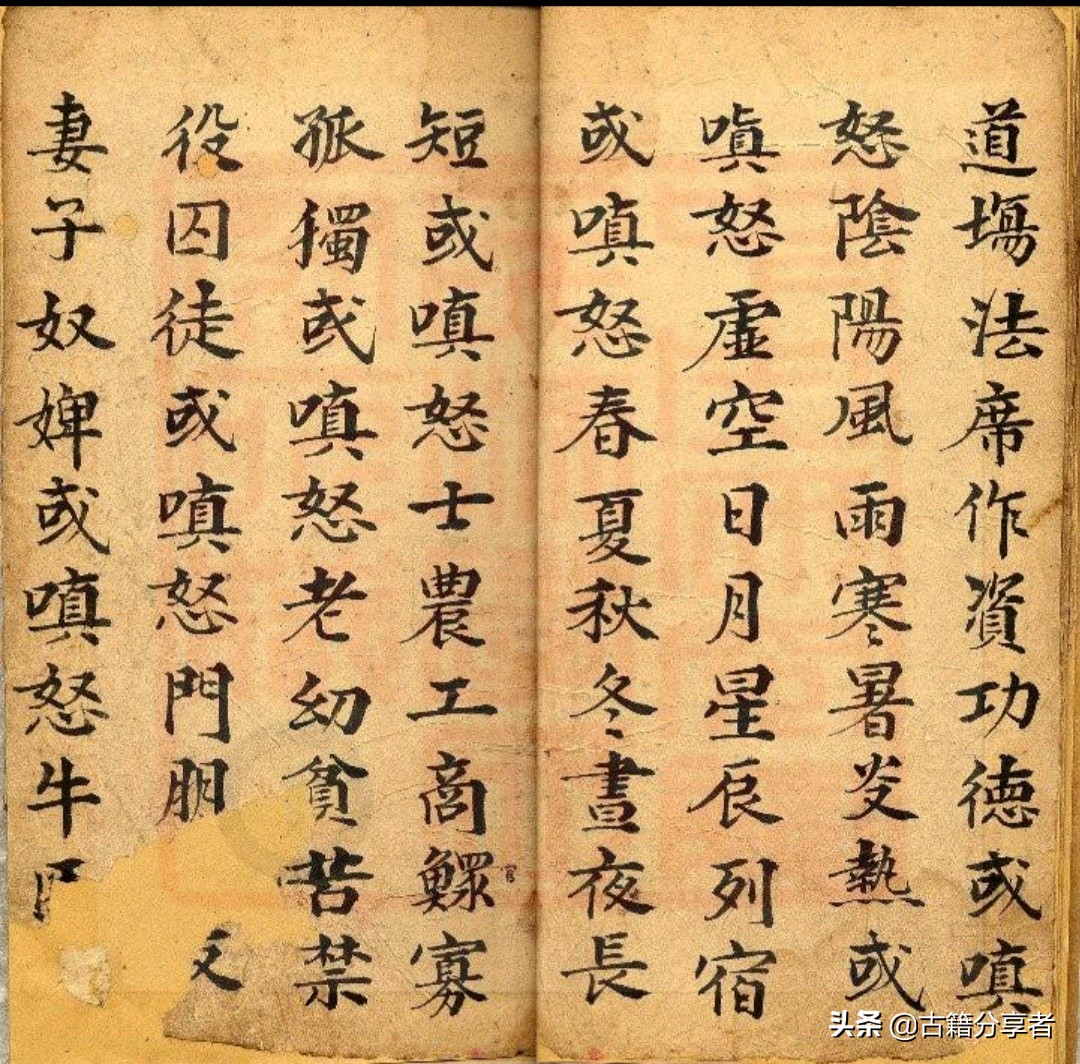 道塲法席作資功徳或嗔
怒陰陽風雨寒暑炎熱或
嗔怒虛空日月星辰列宿
或嗔怒春夏秋冬晝夜長
短或嗔怒士農工商鰥寡
孤獨或嗔怒老幼貧苦禁
役囚徒或嗔怒門朋
妻子奴婢或嗔怒牛
官
头条 @古籍分享者